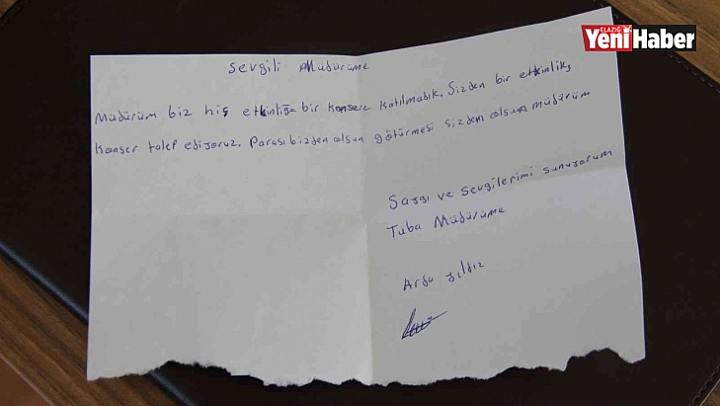 ELAZIĞ
YeniHaber
Sevgili Müdürüme
Müdürüm biz hiç etkinliğe bir konsere katılmadık. Sizden bir etkinlik,
konser talep ediyoruz. Parası bizden olsun götürmesi sizden olsun müdürüm
Saygı ve sevgilerimi sunuyorum
Tuba Müdürüme
Arda Yıldız